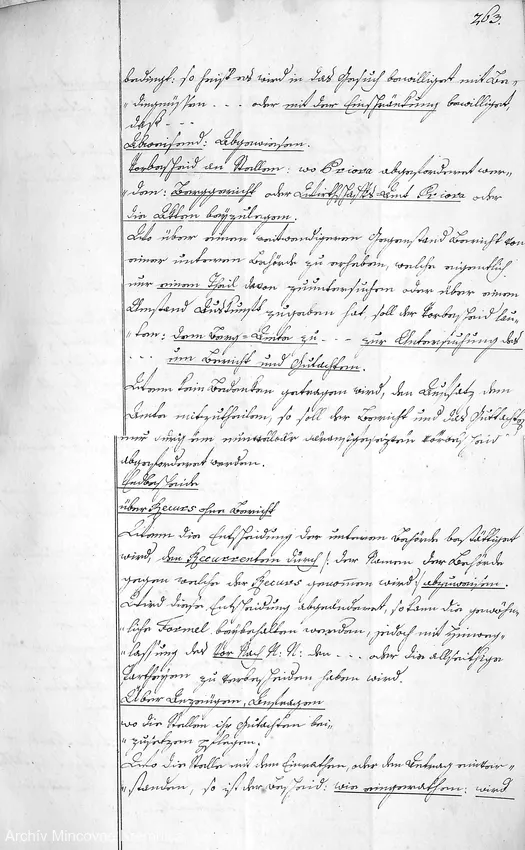 263.
bedingt: so heist es wird in das Gesuch bewilliget mit Be-
„dingnüssen - - - oder mit der Einschränkung bewilliget,
dass - -
Abweisend: Abgewiesen.
Vorbescheid an Stellen: wo Priora abgefordert wer-
„den: Berggericht oder Wirthschafts Amt Priora oder
die Akten beyzulegen.
Wo über einen Gegenstand Bericht von
einer unteren Behörde zu erheben, welche eigentlich
nur einen Theil davon zuuntersuchen oder über einen
Umstand Auskunft zugeben hat, soll der Vorbescheid lau-
„ten: dem Berg-Amte zu - - - zur Untersuchung des
- - - um Bericht und Gutachten.
Wenn kein Bedenken getragen wird, den dem
Amte mitzutheilen, so soll der Bericht und das Gutachten
nur durch ein Vorbescheid
abgefordert werden.
Endbescheide
über Recurs ohne Bericht
Wenn die Entscheidung der unteren Behörde bestättiget
wird, den Recurrenten durch /: der Namen der Behörde
gegen welche der Recurs genommen wird:/ abzuweisen.
Wird diese Entscheidung abgeändert, so kann die gewöhn-
„liche Formel beybehalten werden, jedoch mit Hinweg-
„lassung des N: N: den - - - oder die allseithige
Partheyen zu verbescheiden haben wird.
Über Anträgen
wo die Stellen ihr Gutachten bei-
„zusetzen pflegen.
Wo die Stelle mit dem Einrathen, oder dem Antrag einver-
„standen, so ist der Bescheid: wie eingerathen: wird
Archív Mincovne